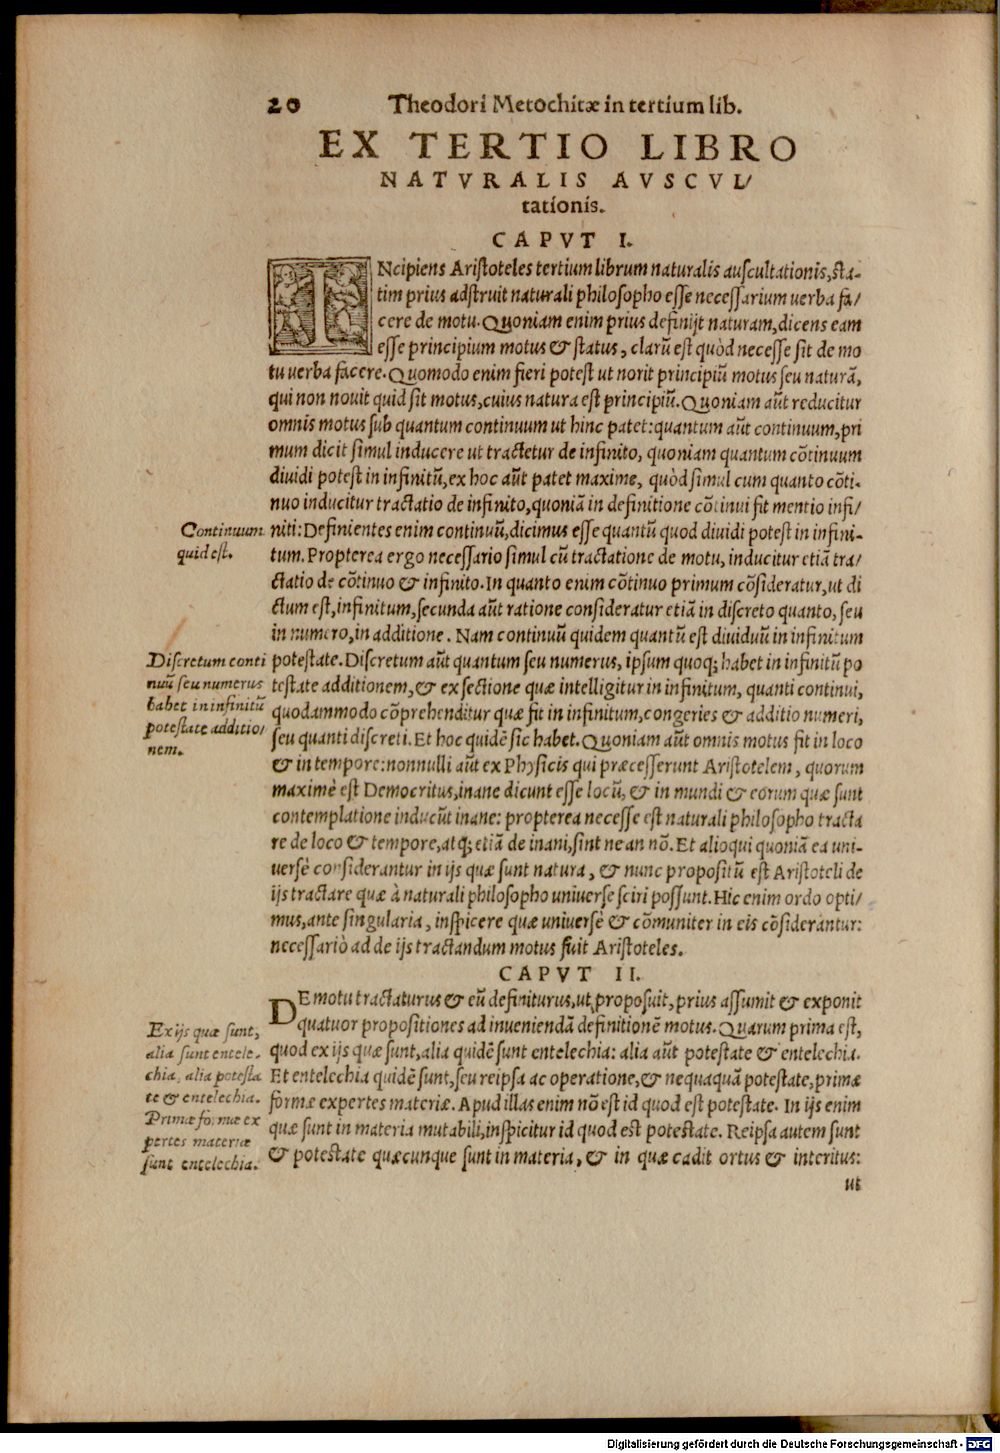 20 Theodori Metochitæ in tertium lib.
EX TERTIO LIBRO
NATVRALIS AVSCVL/
tationis.
CAPVT I.
INcipiens Aristoteles tertium librum naturalis auscultationis, sta-
tim prius adstruit naturali philosopho esse necessarium uerba fa/
cere de motu. Quoniam enim prius definijt naturam, dicens eam
esse principium motus & status, clarū est quòd necesse sit de mo
tu uerba facere. Quomodo enim fieri potest ut norit principiū motus seu naturā,
qui non nouit quid sit motus, cuius natura est principiū. Quoniam aūt reducitur
omnis motus sub quantum continuum ut hinc patet: quantum aūt continuum, pri
mum dicit simul inducere ut tractetur de infinito, quoniam quantum cōtinuum
diuidi potest in infinitū, ex hoc aūt patet maxime, quòd simul cum quanto cōti-
nuo inducitur tractatio de infinito, quoniā in definitione cōtinui fit mentio infi/
Continuum
quid est.
niti: Definientes enim continuū, dicimus esse quantū quod diuidi potest in infini-
tum. Propterea ergo necessario simul cū tractatione de motu, inducitur etiā tra/
ctatio de cōtinuo & infinito. In quanto enim cōtinuo primum cōsideratur, ut di
ctum est, infinitum, secunda aūt ratione consideratur etiā in discreto quanto, seu
in numero, in additione. Nam continuū quidem quantū est diuiduū in infinitum
Discretum conti
nuū seu numerus
habet in infinitū
potestate additio/
nem.
potestate. Discretum aūt quantum seu numerus, ipsum quoq; habet in infinitū po
testate additionem, & ex sectione quæ intelligitur in infinitum, quanti continui,
quodammodo cōprehenditur quæ fit in infinitum, congeries & additio numeri,
seu quanti discreti. Et hoc quidē sic habet. Quoniam aūt omnis motus fit in loco
& in tempore: nonnulli aūt ex Physicis qui præcesserunt Aristotelem, quorum
maximè est Democritus, inane dicunt esse locū, & in mundi & eorum quæ sunt
contemplatione inducūt inane: propterea necesse est naturali philosopho tracta
re de loco & tempore, atq; etiā de inani, sint ne an nō. Et alioqui quoniā ea uni-
uersè considerantur in ijs quæ sunt natura, & nunc propositū est Aristoteli de
ijs tractare quæ à naturali philosopho uniuerse sciri possunt. Hic enim ordo opti/
mus, ante singularia, inspicere quæ uniuersè & cōmuniter in eis cōsiderantur:
necessariò ad de ijs tractandum motus fuit Aristoteles.
CAPVT II.
DE motu tractaturus & eū definiturus, ut proposuit, prius assumit & exponit
quatuor propositiones ad inueniendā definitionē motus. Quarum prima est,
Ex ijs quæ sunt,
alia sunt entele-
chia, alia potesta
te & entelechia.
Primæ formæ ex
pertes materiæ
sunt entelechia.
quod ex ijs quæ sunt, alia quidē sunt entelechia: alia aūt potestate & entelechia.
Et entelechia quidē sunt, seu reipsa ac operatione, & nequaquā potestate, primæ
formæ expertes materiæ. Apud illas enim nō est id quod est potestate. In ijs enim
quæ sunt in materia mutabili, inspicitur id quod est potestate. Reipsa autem sunt
& potestate quæcunque sunt in materia, & in quæ cadit ortus & interitus:
ut
Digitalisierung gefördert durch die Deutsche Forschungsgemeinschaft - DFG